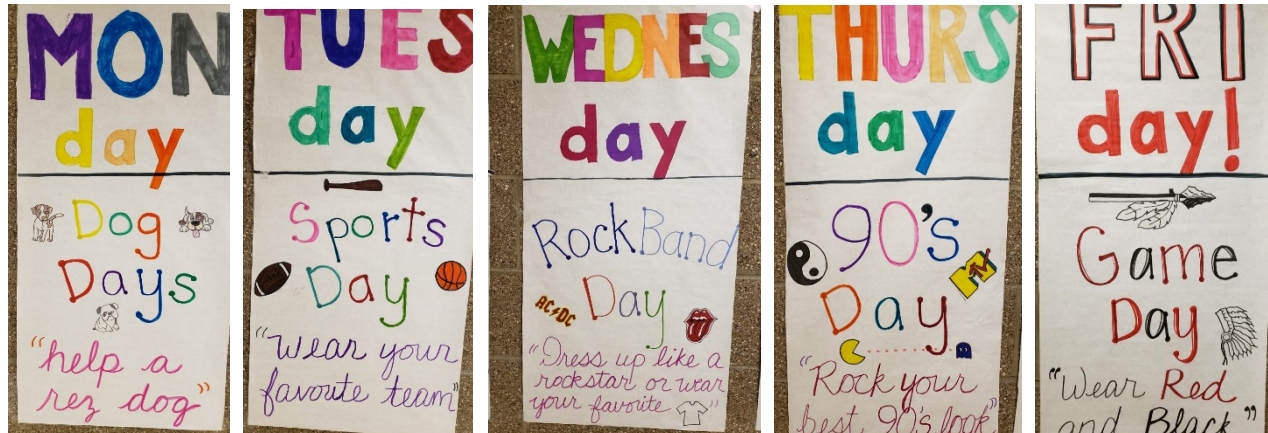 MON
day
Dog
Days
"help a
rez dog"
TUES
day
Sports
Day
"Wear your
favorite team"
WEDNES
day
RockBand
Day
AC/DC
"Dress up like a
rockstar or wear
your favorite
THURS
day
90's
MTV
Day
"Rock your
best 90's look"
FRI
day!
Game
Day
"Wear Red
and Black"